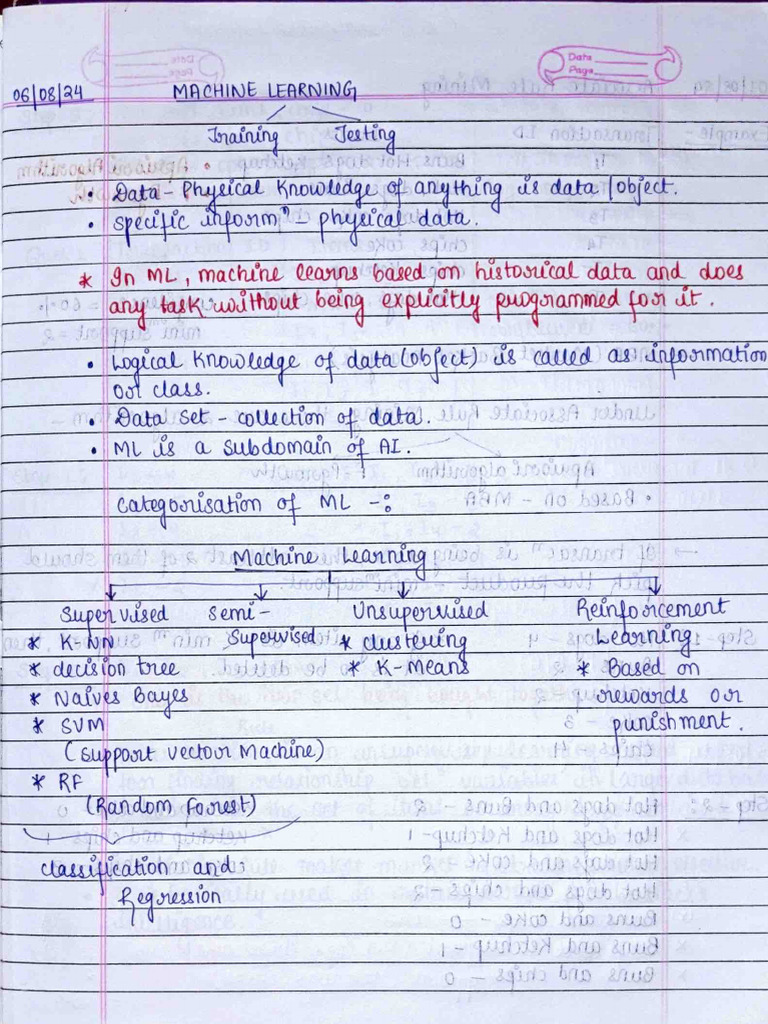 Date
Page
06/08/24 MACHINE LEARNING
Training Testing
• Data - Physical knowledge of anything is data/object.
• Specific informⁿ - physical data.
* In ML, machine learns based on historical data and does
any task without being explicitly programmed for it.
• Logical knowledge of data (object) is called as information
or class.
• Data Set - collection of data.
• ML is a subdomain of AI.
Categorisation of ML -:
Machine Learning
Supervised Semi- Unsupervised Reinforcement
* K-NN Supervised * clustering Learning
* decision tree * K-Means * Based on
* Naives Bayes rewards or
* SVM punishment.
(Support vector Machine)
* RF
(Random forest)
classification and
Regression